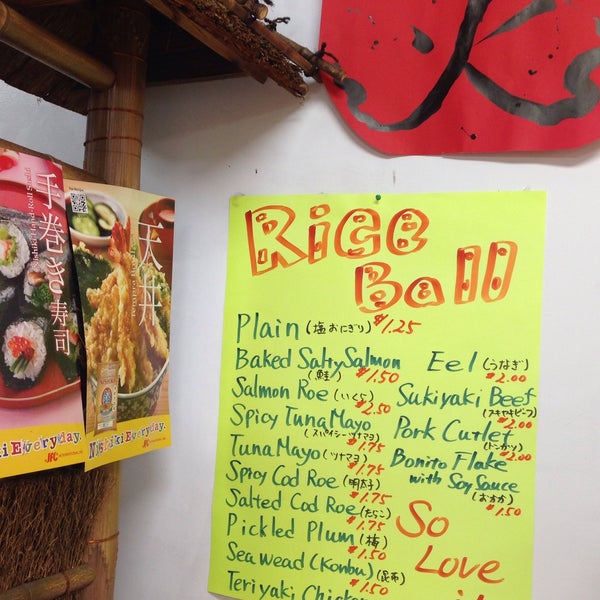 手巻き寿司
Nishiki Hand-Roll Sushi
天丼
i Everyday.
JFC
Nishiki Everyday.
JFC
Rice
Ball
Plain (塩おにぎり) $1.25
Baked Salty Salmon
(鮭) $1.50
Salmon Roe (いくら)
$2.50
Spicy Tuna Mayo
(スパイシーツナマヨ)
$1.75
Tuna Mayo (ツナマヨ)
$1.75
Spicy Cod Roe (明太子)
$1.75
Salted Cod Roe (たらこ)
$1.75
Pickled Plum (梅)
$1.50
Sea wead (Konbu) (昆布)
$1.50
Teriyaki Chicken
Eel (うなぎ)
$2.00
Sukiyaki Beef
(スキヤキビーフ)
$2.00
Pork Cutlet
(トンカツ)
$2.00
Bonito Flake
with Soy Sauce
(おかか)
$1.50
So
Love
it